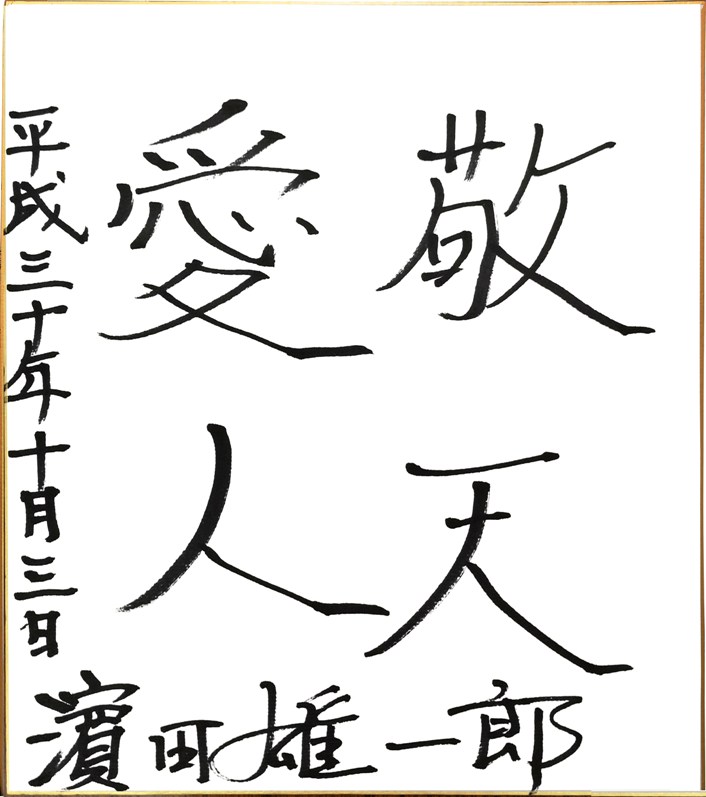 敬天
愛人
平成三十年十月三日
濵田雄一郎